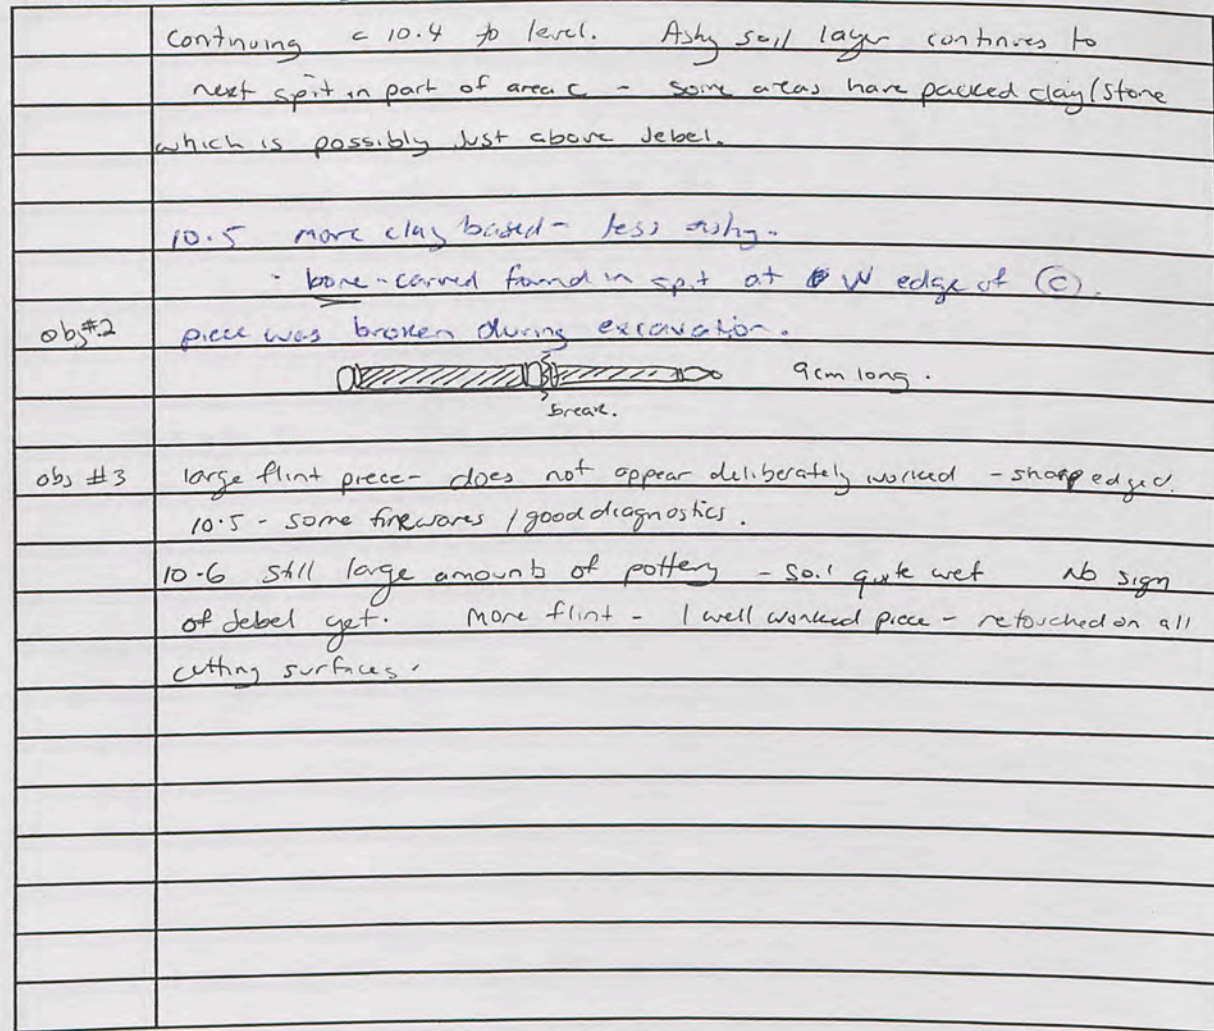 Continuing c 10.4 to level. Ashy soil layer continues to
next spit in part of area c - some areas have packed clay/stone
which is possibly just above Jebel.
10.5 more clay based - less ashy.
- bone - carved found in spit at W edge of (C).
obj #2 piece was broken during excavation.
9cm long.
break.
obj #3 large flint piece - does not appear deliberately worked - sharp edged.
10.5 - some finewares / good diagnostics.
10.6 still large amounts of pottery - soil quite wet No sign
of Jebel yet. More flint - 1 well worked piece - retouched on all
cutting surfaces.